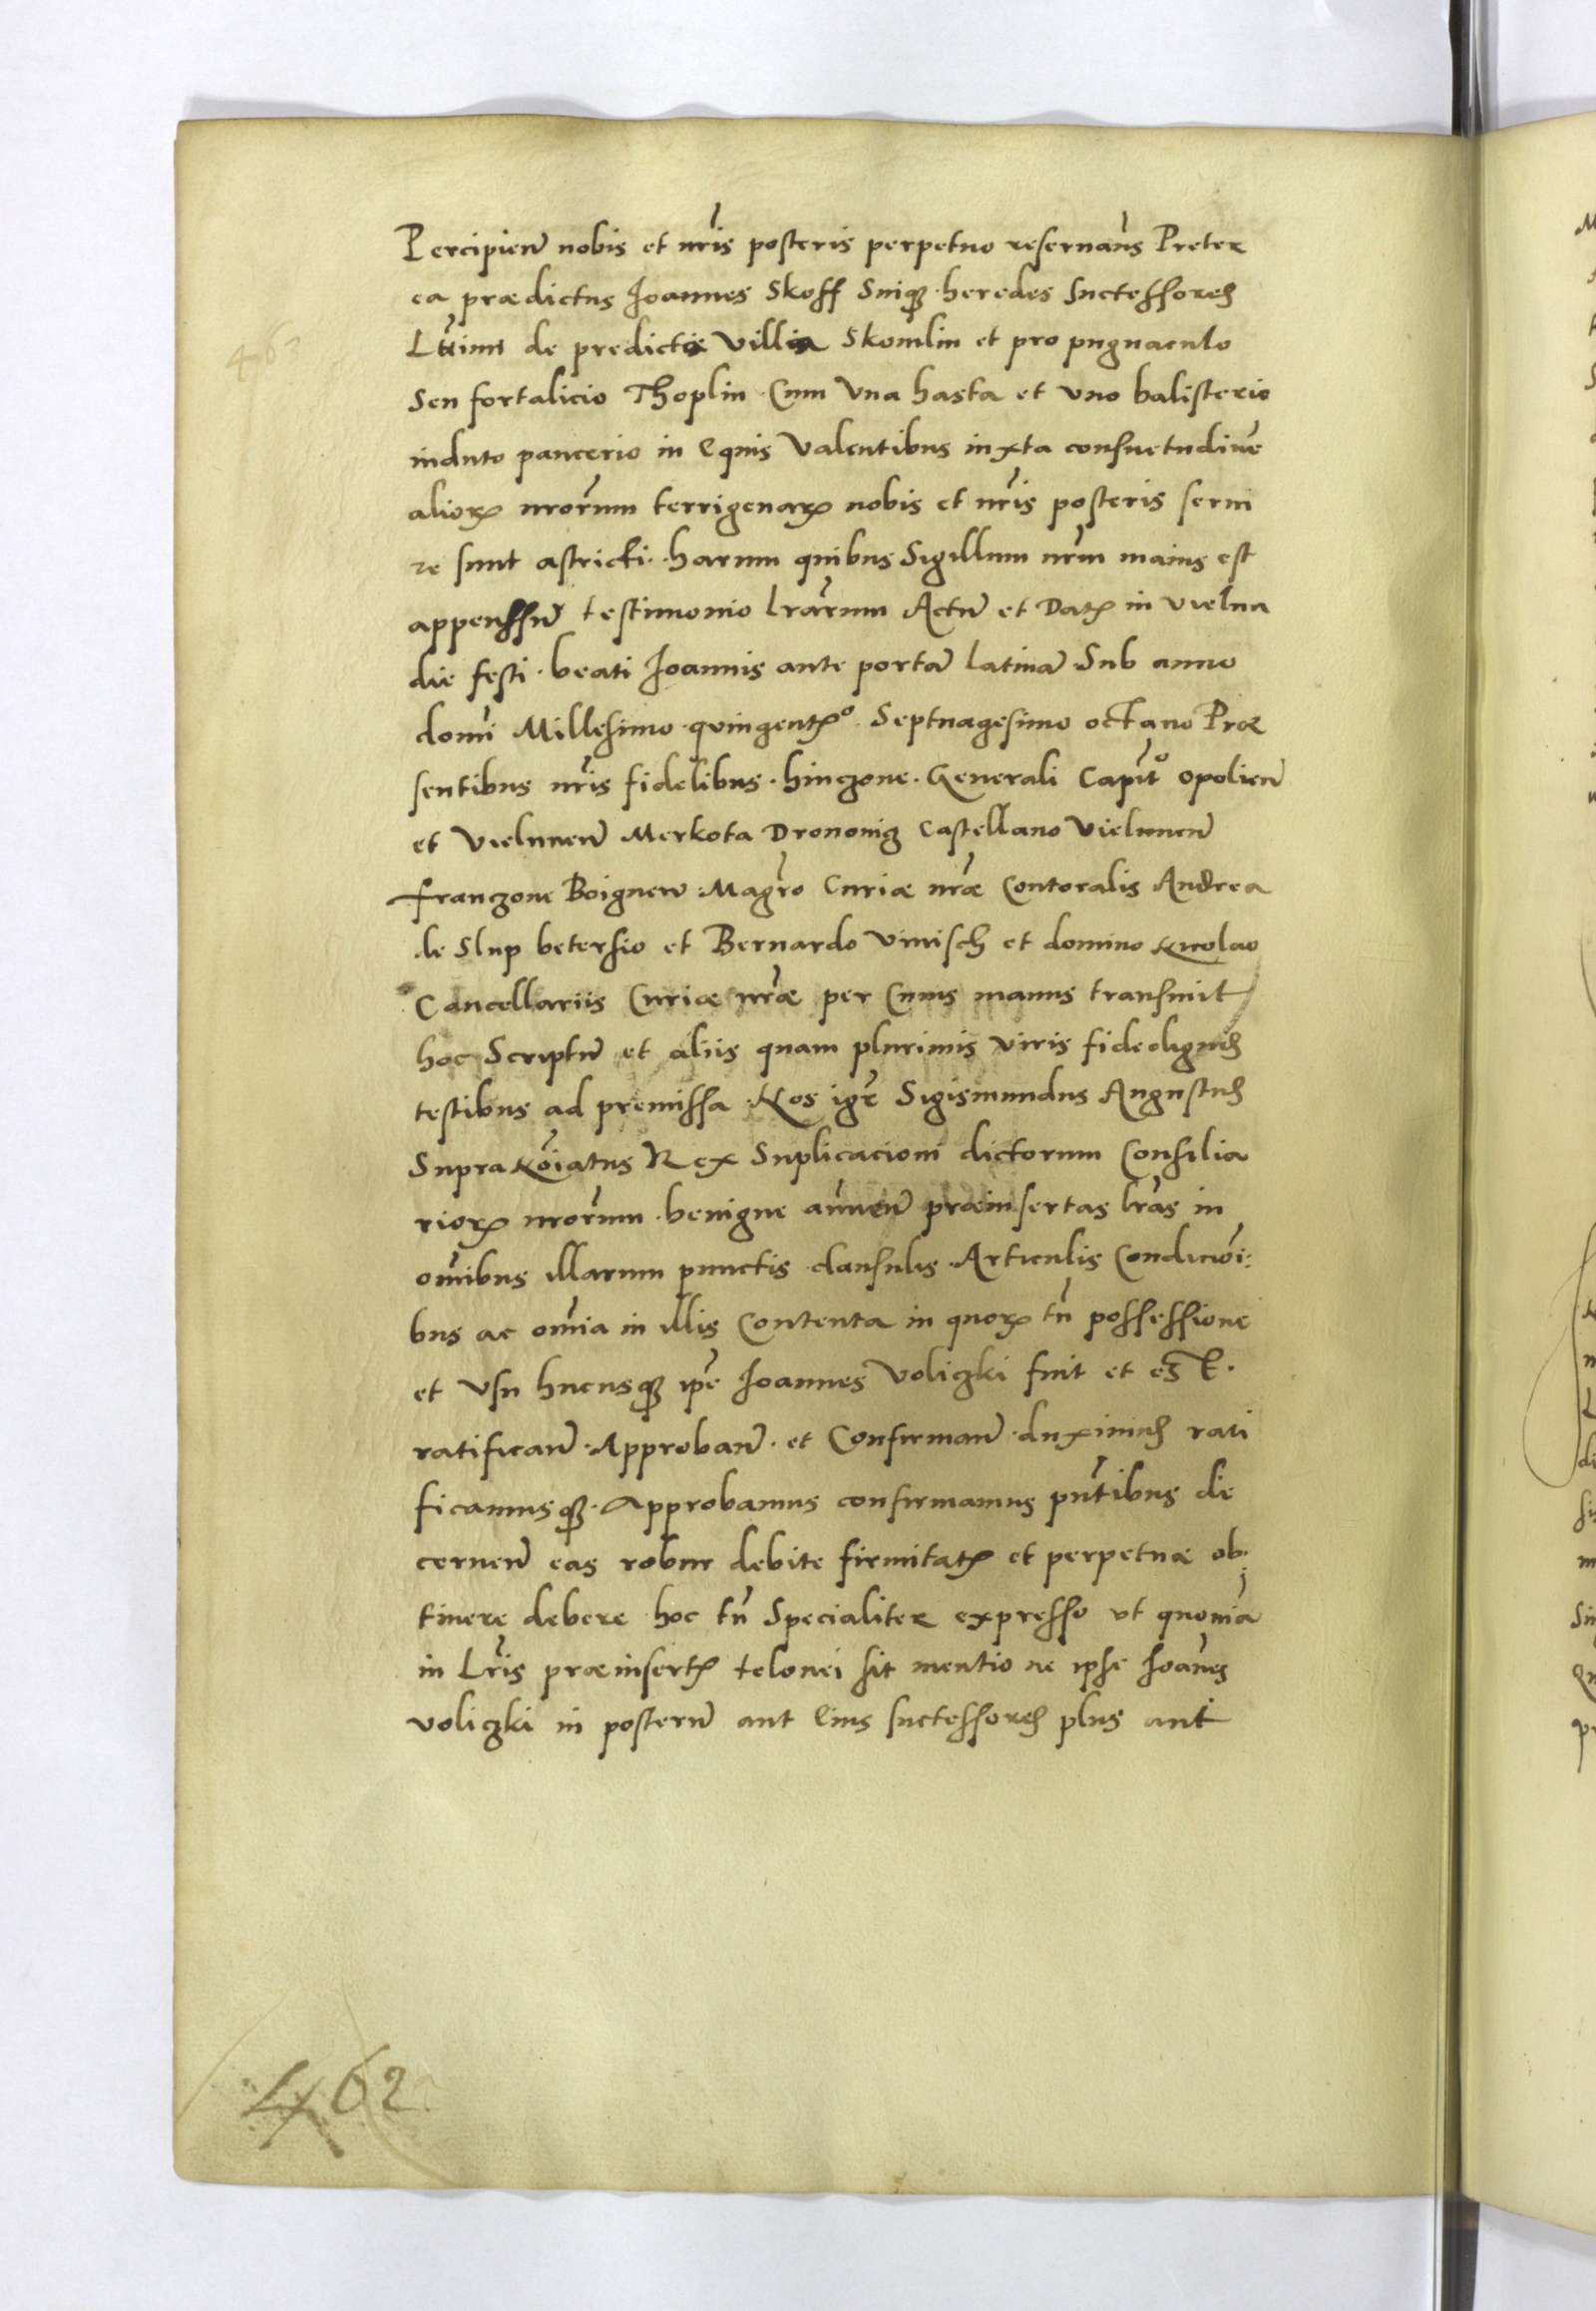 Percipień nobis et nr̃is posteris perpetuo reseruañs Preter
ea prædictus Joannes Skoff Suiqȝ heredes Successores
Ltĩmi de predicta villa Skomlin et pro pugnaculo
Seu fortalicio Thoplin Cum Vna hasta et vno balisterio
induto pancerio in Equis Valentibus iuxta consuetudinẽ
aliorꝝ nror̃um terrigenarꝝ nobis et nr̃is posteris serui
re sunt astricti. harum quibus Sigillum nr̃m maius est
appenssũ testimonio lrãrum Actũ et Datꝝ in Vielun
die festi beati Joannis ante portã latinã Sub anno
domĩ Millesimo quingentꝝᵒ Septuagesimo octauo Præ
sentibus nr̃is fidelibus hinczone Generali Capĩtᵒ opolień
et Vielunẽn Merkota Drononig Castellano Vielunẽn
franczone Boignew Magr̃o Curiæ nr̃æ Contoralis Andrea
de Slup betersio et Bernardo Vinisch et domino Nicolao
Cancellariis Curiæ nr̃æ per Cuius manus transiuit
hoc Scriptũ et aliis quam plurimis viris fidedignis
testibus ad premissa Nos igr̃ Sigismundus Augustus
Supra Nõiatus Rex Suplicacioni dictorum Consilia
riorꝝ nror̃um benigne anñuẽn præinsertas lrãs in
om̃ibus illarum punctis clausulis Articulis Condiciõi:
bus ac om̃ia in illis Contenta in quorꝝ tñ possessione
et Vsu hucusqȝ ip̃e Joannes Voliczki fuit et est.
ratificañ Approbañ et Confirmañ duximus rati
ficamusqȝ Approbamus confirmamus pñtibus de
cernẽn eas robur debite firmitatꝝ et perpetuæ ob:
tinere debere hoc tñ Specialiter expresso vt quoniã
in Lr̃is præinsertꝝ telonei sit mentio ne ipse Joañes
voliczki in posterũ aut Eius successores plus aut
462